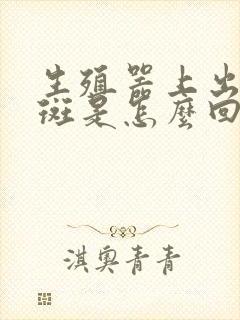 生殖器上出
斑是怎麼回
淇奧青青